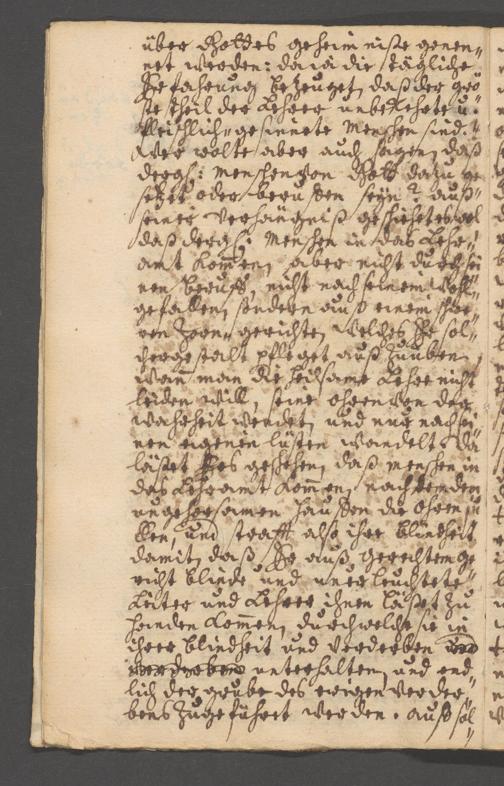 über Gottes geheimniße genen-
net werden: da ja die tägliche
Erfahrung bezeuget, daß der grö
ste theil der Lehrer unbekehrte u.
fleischlich-gesinnete Menschen sind.
Wer wolte aber auch sagen, daß
dergl: menschen von Gott dazu ge
setzet oder beruffen seyn? auß
seiner Verhängniß geschiehet es wol
daß dergl: Menschen in das Lehr-
amt kommen, aber nicht durch sei
nen beruff, nicht nach seinem wohl-
gefallen, sondern auß einem
ren Zorn-gerichte, welches Er sol-
chergestalt pfleget auß zuüben,
wann man die heilsame Lehre nicht
leiden will, seine ohren von der
wahrheit wendet, und nur nach sei
nen eigenen lüsten wandelt. da
läßet Er es geschehen, daß menschen in
das Lehramt kommen, nach dem dem
ungehorsamen hauffen die ohren ju
cken, und strafft also ihre blindheit
damit, daß Er auß gerechtem ge
richt blinde und unerleuchtete
Leiter und Lehrer ihnen läßet zu
handen kommen, durch welche sie in
ihrer blindheit und verderben und
verderben unterhalten, und end-
lich der grube des ewigen verder-
bens zugeführet werden. auß sol